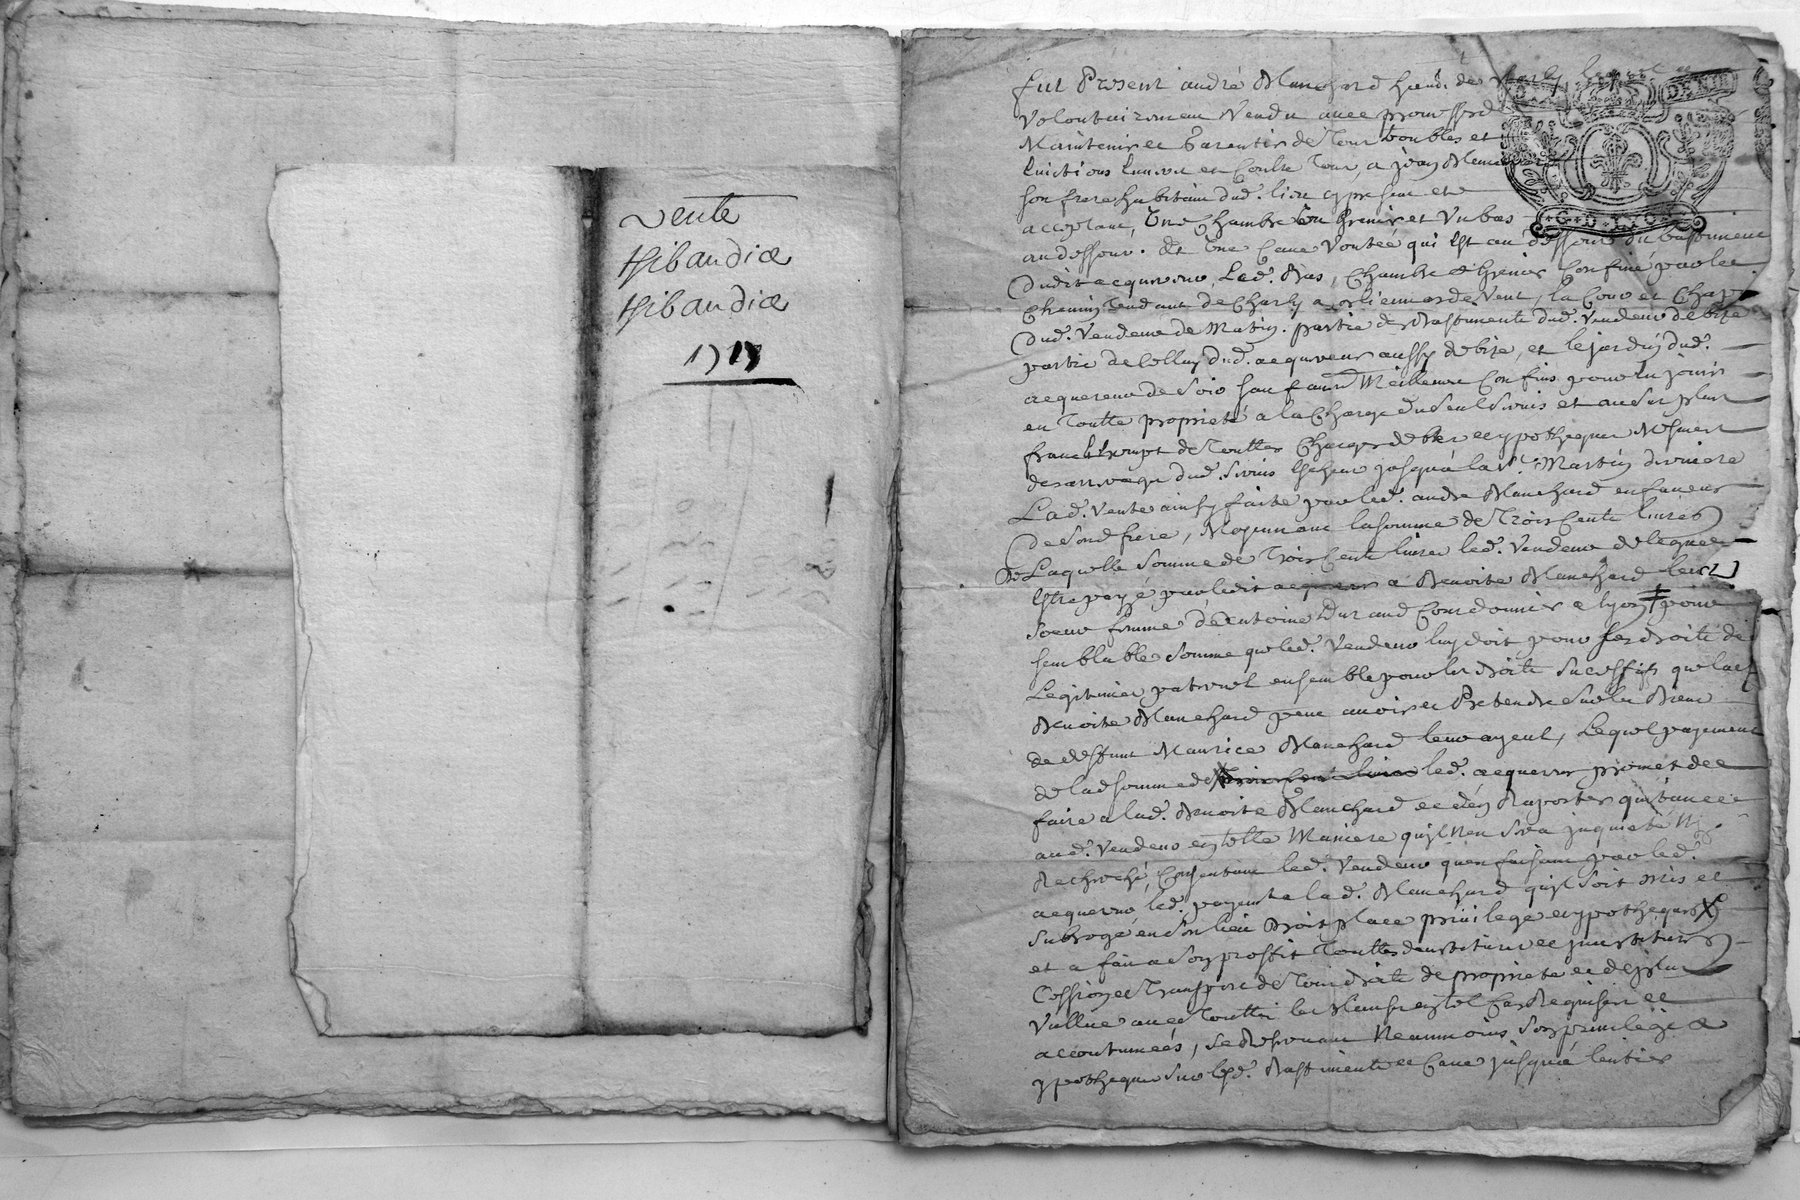 vente
thibaudiæ
thibaudiæ
1717
fut Present andré Blanchard hœnê: de
Volontairemen Vendu avec promesse de
Maintenir et Garentir de Tour troubles et
Euictions Enuer et Contre Tour a jean Blanchard
son frere habitan dud. lieu cy present et
acceptant, Une Chambre Un Grenier et Un bas
au dessour. Et Une Cave Voutée qui Est au dessour du bastiment
Dudit acquereur, Led. Bas, Chambre et Grenier Confiné par le
Chemin Tendant de Charly a de Vent, la Cour et
Dud. Vendeur de Matin. partie des Bastiments dud. Vendeur de bize
partie de celluy Dud. acquereur aussy de bize, et le jardin Dud.
acquereur de Soir sauf aud Meilleurs Confins pour En jouir
en Toutte proprieté a la Charge du Seul Servis et au Sur plus
franc Exempt de Touttes Charges debtes et ypotheques Mesmes
des arrerage dud. Servis Escheu jusqua la St. Martin derniere
Lad. Vente ainsy faite par led. andre Blanchard en faueur
De Sond frere, Moyennant la somme de Trois Cents liures
De Laquelle Somme de Trois Cent liures led. Vendeur delegue
Estre payé par ledit acquereur a Benoite Blanchard leur
Soeur femme d'Antoine Durand Cordonnier a lyon pour
semblable Somme que led. Vendeur luy doit pour ses droits de
Legitime paternel ensemble pour les droits Sucessifs que lad
Benoite Blanchard peut auoir et Pretendre sur les Biens
de deffunt Maurice Blanchard leur ayeul, Lequel payement
de lad somme de Trois Cent liures led. acquereur promet de
faire a lad. Benoite Blanchard et d'En Raporter quittance
aud. Vendeur en telle Maniere quil N'en Sera jnquieté Ny
Recherché, Consentant led. Vendeur qu'en faisant par led.
acquereur led. payement a lad. Blanchard quil Soit mis et
Subrogé en Son lieu Droit place priuilege et ypotheques
et a fait a Son proffit Touttes deuestiture et jnuestiture
Cession et Transport de Tour droits de proprieté et de plus
Vallue auec Touttes les Clauses en tel Cas Requises et
accoutumées, Se Reseruant Neanmoins Son priuilege et
ypotheques Sur lesd. Bastiments et Caue jusqua lentier